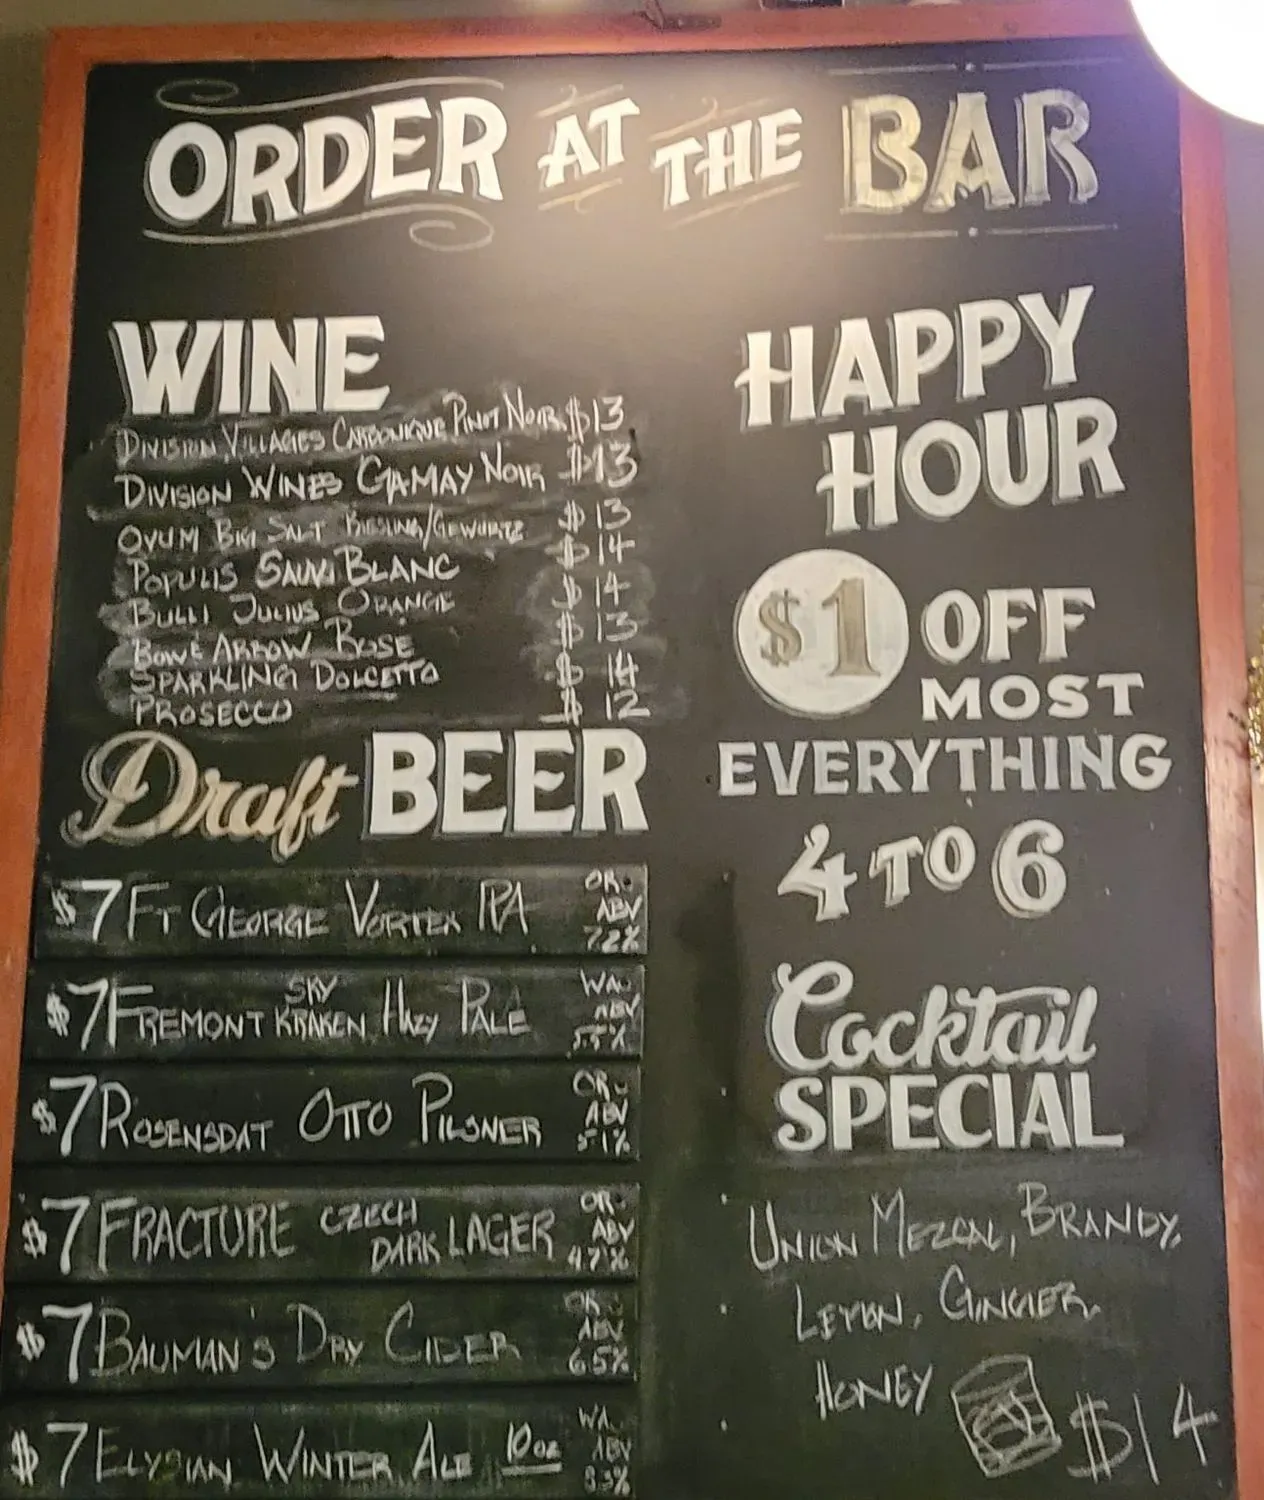 ORDER AT THE BAR
WINE
DIVISION VILLAGES CARBONIQUE PINOT NOIR $13
DIVISION WINES GAMAY NOIR $13
OVUM BIG SALT RIESLING/GEWURTZ $13
POPULIS SAUV BLANC $14
BULLI JULIUS ORANGE $14
BOW & ARROW ROSE $13
SPARKLING DOLCETTO $14
PROSECCO $12
Draft BEER
$7 FT GEORGE VORTEX IPA OR. ABV 7.2%
$7 FREMONT SKY KRAKEN HAZY PALE WA. ABV 5.5%
$7 ROSENSDAT OTTO PILSNER OR. ABV 5.1%
$7 FRACTURE CZECH DARK LAGER OR. ABV 4.7%
$7 BAUMAN'S DRY CIDER OR. ABV 6.5%
$7 ELYSIAN WINTER ALE 10 oz WA. ABV
HAPPY
HOUR
$1 OFF
MOST
EVERYTHING
4 TO 6
Cocktail
SPECIAL
UNION MEZCAL, BRANDY,
LEMON, GINGER,
HONEY $14